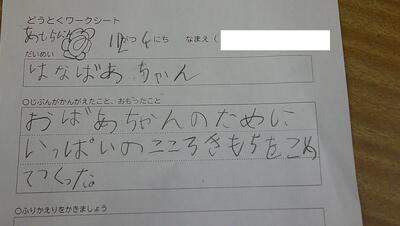 どうとくワークシート
12がつ4にち なまえ（
だいめい
はなばあちゃん
○じぶんがかんがえたこと、おもったこと
おばあちゃんのために
いっぱいのこころきもちをこめ
てつくった
○ふりかえりをかきましょう